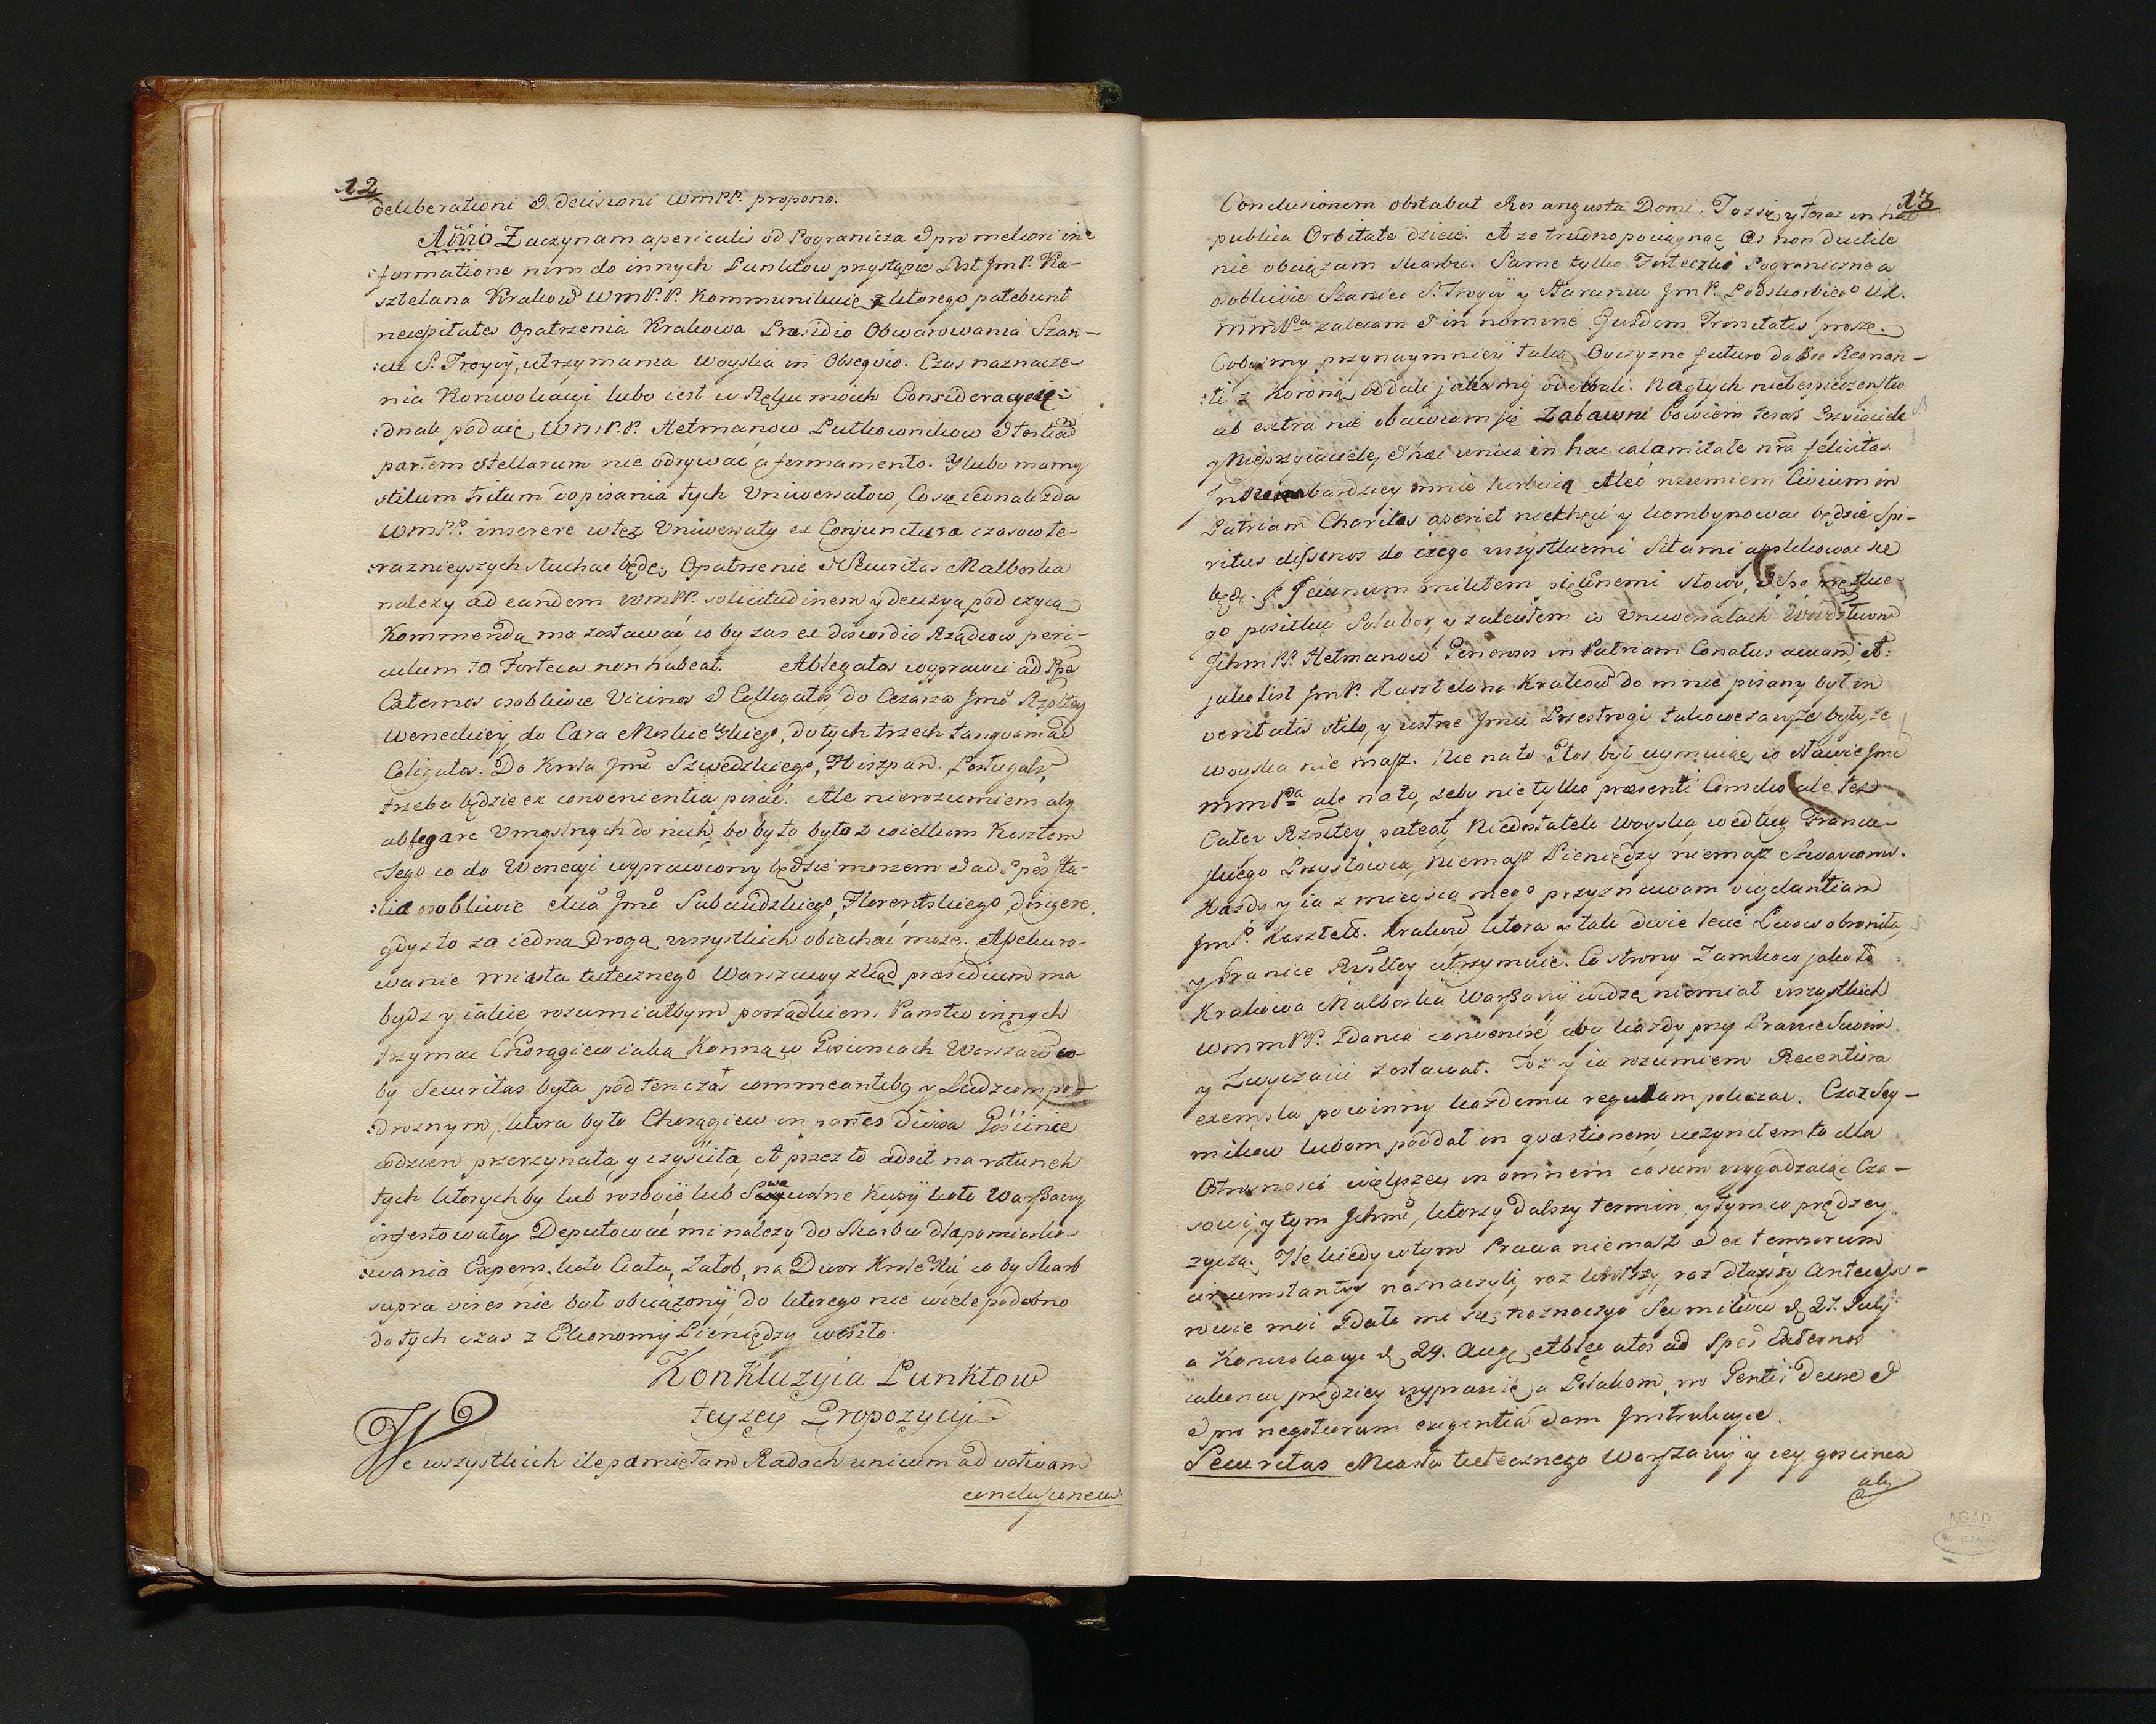 12
deliberationi & decisioni WmPP. propono.
Zaczynam a periculis od Pogranicza & pro meliori in=
:formatione nim do innych Punktow przystąpie List JmP. Ka-
sztelana Krakow WmP.P. Kommunikuię z ktorego patebunt
necessitates Opatrzenia Krakowa Praesidio Obwarowania Szan-
:cu S. Troycy, utrzymania woyska in Obsequio. Czas naznacze-
nia Konwokacyi lubo iest w Ręku moich Consideracyą ie:
:dnak podaię WmP.P. Hetmanow Pułkownikow
partem stellarum nie odrywać a firmamento. Y lubo mamy
stilum tritum do pisania tych Uniwersałow, Co się iednak zda
WmPP. inserere w też Uniwersały ex Conjunctura czasow te-
:raznieyszych słuchac będę. Opatrzenie & Securitas Malborka
nalezy ad eandem WmPP. solicitudinem y decyzyą pod czyią
Kommendą ma zostawać co by zas ex discordia Rządcow peri-
culum ta Forteca non habeat. Ablegatos wyprawić ad
Externos osobliwie Vicinos & Colligatos do Cezarza Jmći Rzpltey
Weneckiey do Cara Moskiewskiego, do tych trzech tanquam ad
Coligatos. Do Krola Jmći Szwedzkiego, Hiszpan. Portugalš,
trzeba będzie ex convenientia pisać. Ale nierozumiem aby
ablegare Umyslnych do nich, bo by to było z wielkim Kosztem
Tego co do Wenecyi wyprawiony będzie mozem & ad Spes Ita-
:lia osobliwie Jmć Sabaudzkiego, Florentskiego, dirigere.
gdyz to za iedna drogą wszystkich obiechać moze. Assekuro-
wanie miasta tutecznego Warszawy zkąd praesidium ma
bydz y iakie rozumiałbym porządkiem. Panstw innych
trzymac Chorągiew iaką Konną w Goscincach Warszaw co-
by Securitas była pod ten czas commeantibq y Ludziom po-
:droznym, ktora by to Chorągiew in partes divisa Gościnie
codzien przerzynała y czyściła, A przez to adsit na ratunek
tych ktorych by lub rozboie lub Swawolne Kupy koło Warszawy
infestowały. Deputować mi nalezy do Skarbu dla pomiarko-
:wania Expens. koło Ciała, Załob, na Dwor Krolewski co by Skarb
supra vires nie był obciązony do ktorego nie wiele podobno
do tych czas z Ekonomy Pieniędzy weszło.
Konkluzyia Punktow
teyzey Propozycyi
We wszystkich ile pamiętam Radach unicum ad votivam
conclusionem.
13
Conclusionem obstabat Res angusta Domi. Toz się y teraz in hac
publica Orbitate dzieie. A ze trudno pociągnąc Os non ductile
nie obciązam skarbu. Same tylko Forteczki Pograniczne a
osobliwie Szaniec S. Troycy y Staraniu JmP. Podskarbiego Wt.
mmPa zalecam & in nomine Ejusdem Trinitatis proszę.
Cobysmy przynaymniey taką Oyczyznę futuro da Deo Regnan-
:ti z Koroną oddali jakąsmy odebrali. Nagłych niebespieczenstw
ab extra nie obawiam się Zabawni bowiem teraz Przyiaciele
y Nieprzyiaciele, & haec unica in hac calamitate nra felicitas.
bardziey mnie turbuią Ależ rozumiem Civium in
Patriam Charitas aperiet niechęci y kombynowac będzie Spi-
ritus dissonos do czego wszystkiemi Siłami applikowac się
będę. Jeiunum militem pięknemi słowy,
go posiłku Solabor, y zaleciłem w Uniwersałach
Jchm PP. Hetmanow Generosos in Patriam Conatus
jako list JmP. Kasztelana Krakow do mnie pisany był in
veritatis stilo, y ustne Jmci Przestrogi takowe zawsze były, ze
woyska nie masz. Nie na to Głos był uymuiąc co Sławie Jmci
mmPa ale na to, zeby nie tylko praesenti Consilio ale tez
Caler Rzpltey pateat, Niedostatek woyska, według Francu-
skiego Przysłowia, Niemasz Pieniędzy niemasz
Kazdy y ia z mieysca mego przyznawam vigilantiam
JmP. Kasztel. Krakow ktora y tak dwie lecie Lwow obroniła,
y Granice Rzpltey utrzymuie. Co strony Zamkow jako to
Krakowa Malborka Warszawy widzę niemal wszystkich
WmmPP. Zdania convenire, aby kazdy przy Prawie Swoim
y Zwyczaiu zostawał. Toz y ia rozumiem Recentiora
exempla powinny kazdemu regulam pokazac. Czas Sey-
mikow lubom poddał in quaestionem, uczyniłem to dla
Ostrznosci większey in omnem casum wygadzaiąc Cza-
sowi, y tym Jchmć, ktorzy dalszy termin, y tym co prędzey
zyczą. Ile kiedy w tym Prawa niemasz & ex temporum
circumstantys naznaczyli, raz krotszy, raz dłuzszy Antecesso-
rowie moi Zdało mi się, naznaczyc Seymikow d. 27. July
a Konwokacyi d. 29. Aug. Ablegatos ad Spes Externos
iako nayprędzey wyprawię a Polakow, pro Genti Decore &
& pro negotiorum exigentia dam Jnstrukcye.
Securitas Miasta tutecznego Warszawy y iey goscinca
aby
AGAD